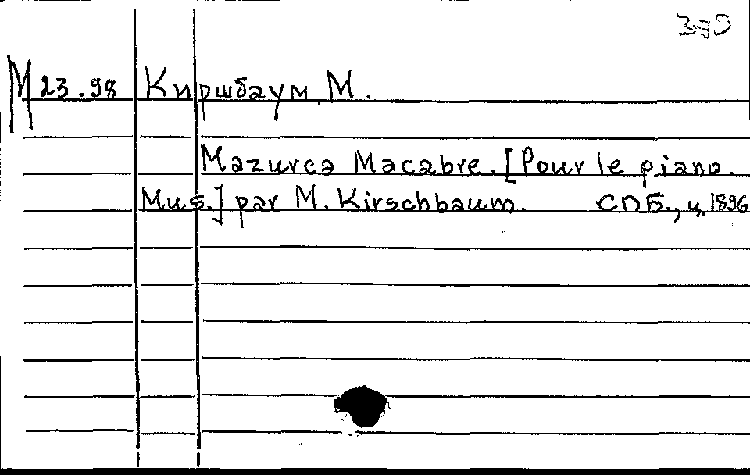 M 23.98 Киршбаум М.
Mazurca Macabre. [Pour le piano.
Mus.] par M. Kirschbaum. СПБ., ц. 1896